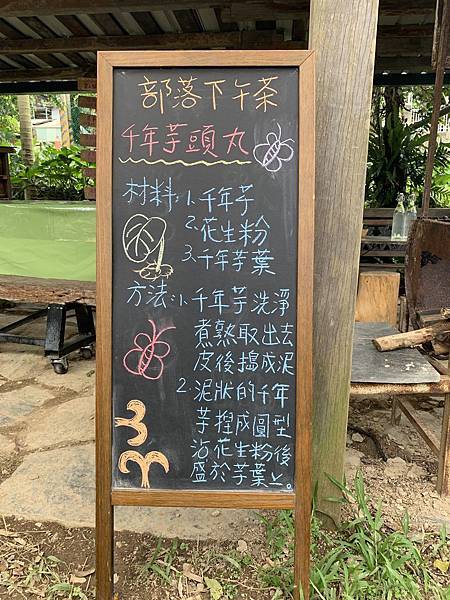 部落下午茶
千年芋頭丸
材料:1.千年芋
2.花生粉
3.千年芋葉
方法:1.千年芋洗淨
煮熟取出去
皮後搗成泥
2.泥狀的千年
芋捏成圓型
沾花生粉後
盛於芋葉上。